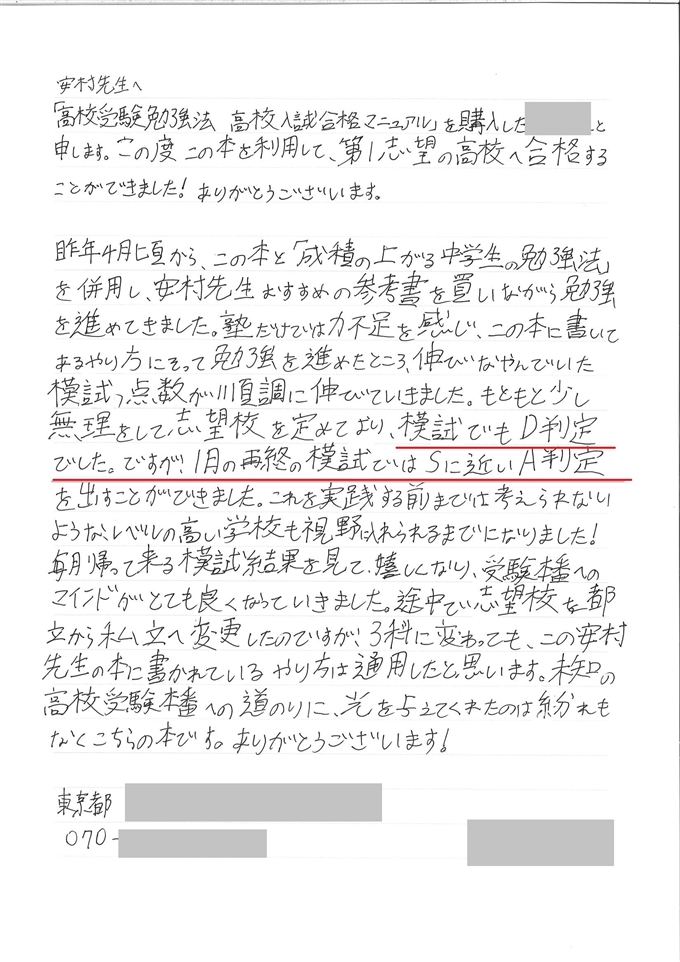 安村先生へ
「高校受験勉強法 高校入試合格マニュアル」を購入した と
申します。この度この本を利用して、第1志望の高校へ合格する
ことができました!ありがとうございます。
昨年4月頃から、この本と「成積の上がる中学生の勉強法」
を併用し、安村先生おすすめの参考書を買いながら勉強
を進めてきました。塾だけでは力不足を感じ、この本に書いて
あるやり方にそって勉強を進めたところ、伸びなやんでいた
模試の点数が順調に伸びていきました。もともと少し
無理をして志望校を定めており、模試でもD判定
でした。ですが、1月の再終の模試ではSに近いA判定
を出すことができました。これを実践する前までは考えられない
ような、レベルの高い学校も視野に入れられるまでになりました!
毎月帰って来る模試結果を見て、嬉しくなり、受験本番への
マインドがとても良くなっていきました。途中で志望校を都
立から私立へ変更したのですが、3科に変わっても、この安村
先生の本に書かれているやり方は通用したと思います。未知の
高校受験本番への道のりに、光を与えてくれたのは紛れも
なくこちらの本です。ありがとうございます!
東京都
070-